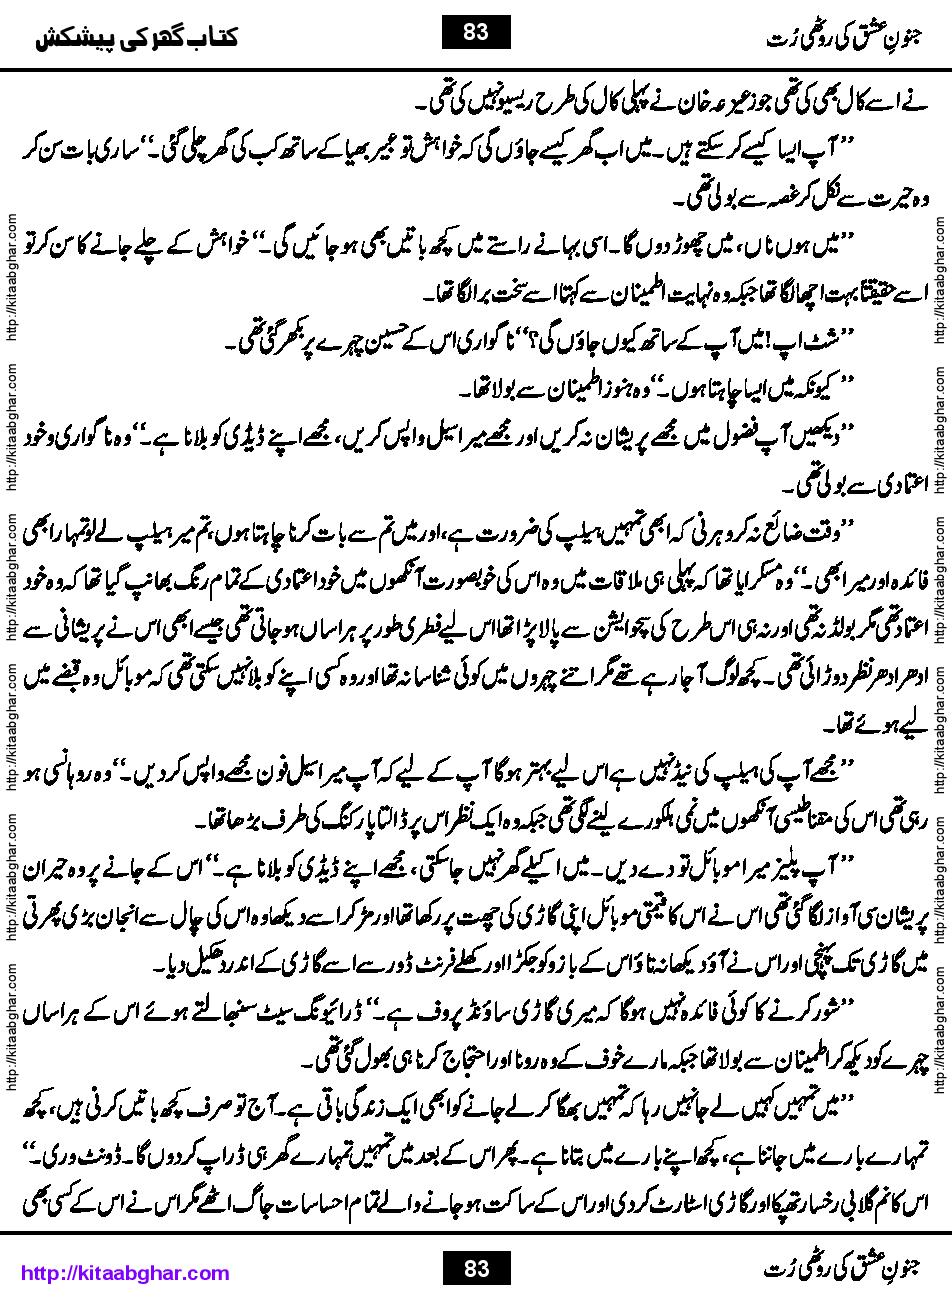 جنونِ عشق کی روٹھی رُت
83
کتاب گھر کی پیشکش
نے اسے کال بھی کی تھی جو زعیزعہ خان نے پہلی کال کی طرح ریسیو نہیں کی تھی۔
’’آپ ایسا کیسے کر سکتے ہیں۔ میں اب گھر کیسے جاؤں گی کہ خواہش تو عبیر بھیا کے ساتھ کب کی گھر چلی گئی۔‘‘ ساری بات سن کر
وہ حیرت سے نکل کر غصہ سے بولی تھی۔
’’میں ہوں ناں، میں چھوڑ دوں گا۔ اسی بہانے راستے میں کچھ باتیں بھی ہو جائیں گی۔‘‘ خواہش کے چلے جانے کا سن کر تو
اسے حقیقتاً بہت اچھا لگا تھا جبکہ وہ نہایت اطمینان سے کہتا اسے سخت برا لگا تھا۔
’’شٹ اپ! میں آپ کے ساتھ کیوں جاؤں گی؟‘‘ ناگواری اس کے حسین چہرے پر بکھر گئی تھی۔
’’کیونکہ میں ایسا چاہتا ہوں۔‘‘ وہ ہنوز اطمینان سے بولا تھا۔
’’دیکھیں آپ فضول میں مجھے پریشان نہ کریں اور مجھے میرا سیل واپس کریں، مجھے اپنے ڈیڈی کو بلانا ہے۔‘‘ وہ ناگواری و خود
اعتمادی سے بولی تھی۔
’’وقت ضائع نہ کرو ہرنی کہ ابھی تمہیں ہیلپ کی ضرورت ہے، اور میں تم سے بات کرنا چاہتا ہوں، تم میر ہیلپ لے لو تمہارا بھی
فائدہ اور میرا بھی۔‘‘ وہ مسکرایا تھا کہ پہلی ہی ملاقات میں وہ اس کی خوبصورت آنکھوں میں خود اعتمادی کے تمام رنگ بھانپ گیا تھا کہ وہ خود
اعتماد تھی مگر بولڈ نہ تھی اور نہ ہی اس طرح کی سچوایشن سے پالا پڑا تھا اس لیے فطری طور پر ہراساں ہو جاتی تھی جیسے ابھی اس نے پریشانی سے
ادھر ادھر نظر دوڑائی تھی۔ کچھ لوگ آ جا رہے تھے مگر اتنے چہروں میں کوئی شناسا نہ تھا اور وہ کسی اپنے کو بلا نہیں سکتی تھی کہ موبائل وہ قبضے میں
لیے ہوئے تھا۔
’’مجھے آپ کی ہیلپ کی نیڈ نہیں ہے اس لیے بہتر ہوگا آپ کے لیے کہ آپ میرا سیل فون مجھے واپس کر دیں۔‘‘ وہ روہانسی ہو
رہی تھی اس کی مقناطیسی آنکھوں میں نمی ہلکورے لینے لگی تھی جبکہ وہ ایک نظر اس پر ڈالتا پارکنگ کی طرف بڑھا تھا۔
’’آپ پلیز میرا موبائل تو دے دیں۔ میں اکیلے گھر نہیں جا سکتی، مجھے اپنے ڈیڈی کو بلانا ہے۔‘‘ اس کے جانے پر وہ حیران
پریشان سی آواز لگا گئی تھی اس نے اس کا قیمتی موبائل اپنی گاڑی کی چھت پر رکھا تھا اور مڑ کر اسے دیکھا وہ اس کی چال سے انجان بڑی پھرتی
میں گاڑی تک پہنچی اور اس نے آؤ دیکھا نہ تاؤ اس کے بازو کو جکڑا اور کھلے فرنٹ ڈور سے اسے گاڑی کے اندر دھکیل دیا۔
’’شور کرنے کا کوئی فائدہ نہیں ہوگا کہ میری گاڑی ساؤنڈ پروف ہے۔‘‘ ڈرائیونگ سیٹ سنبھالتے ہوئے اس کے ہراساں
چہرے کو دیکھ کر اطمینان سے بولا تھا جبکہ مارے خوف کے وہ رونا اور احتجاج کرنا ہی بھول گئی تھی۔
’’میں تمہیں کہیں لے جا نہیں رہا کہ تمہیں بھگا کر لے جانے کو ابھی ایک زندگی باقی ہے۔ آج تو صرف کچھ باتیں کرنی ہیں، کچھ
تمہارے بارے میں جاننا ہے، کچھ اپنے بارے میں بتانا ہے۔ پھر اس کے بعد میں تمہیں تمہارے گھر ہی ڈراپ کر دوں گا۔ ڈونٹ وری۔‘‘
اس کا نم گلابی رخسار تھپکا اور گاڑی اسٹارٹ کر دی اور اس کے ساکت ہو جانے والے تمام احساسات جاگ اٹھے مگر اس نے اس کے کسی بھی
جنونِ عشق کی روٹھی رُت
83
http://kitaabghar.com
http://kitaabghar.com
http://kitaabghar.com
http://kitaabghar.com
http://kitaabghar.com
http://kitaabghar.com
http://kitaabghar.com
http://kitaabghar.com
http://kitaabghar.com
http://kitaabghar.com
http://kitaabghar.com
http://kitaabghar.com
http://kitaabghar.com